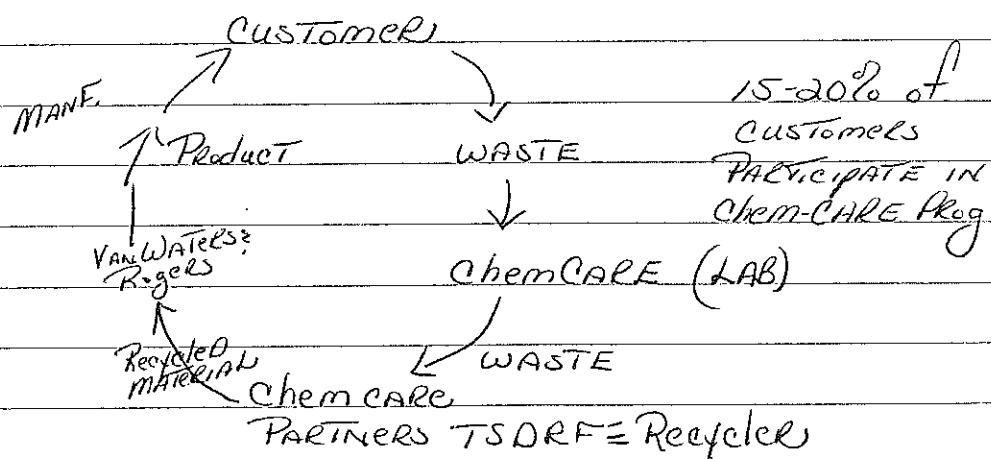 Customer
MANF.
Product
WASTE
15-20% of
Customers
PARTICIPATE IN
Chem-CARE Prog
VAN WATERS &
Rogers
ChemCARE (LAB)
Recycled
MATERIAL
WASTE
Chem CARE
PARTNERS TSDRF ≡ Recycler